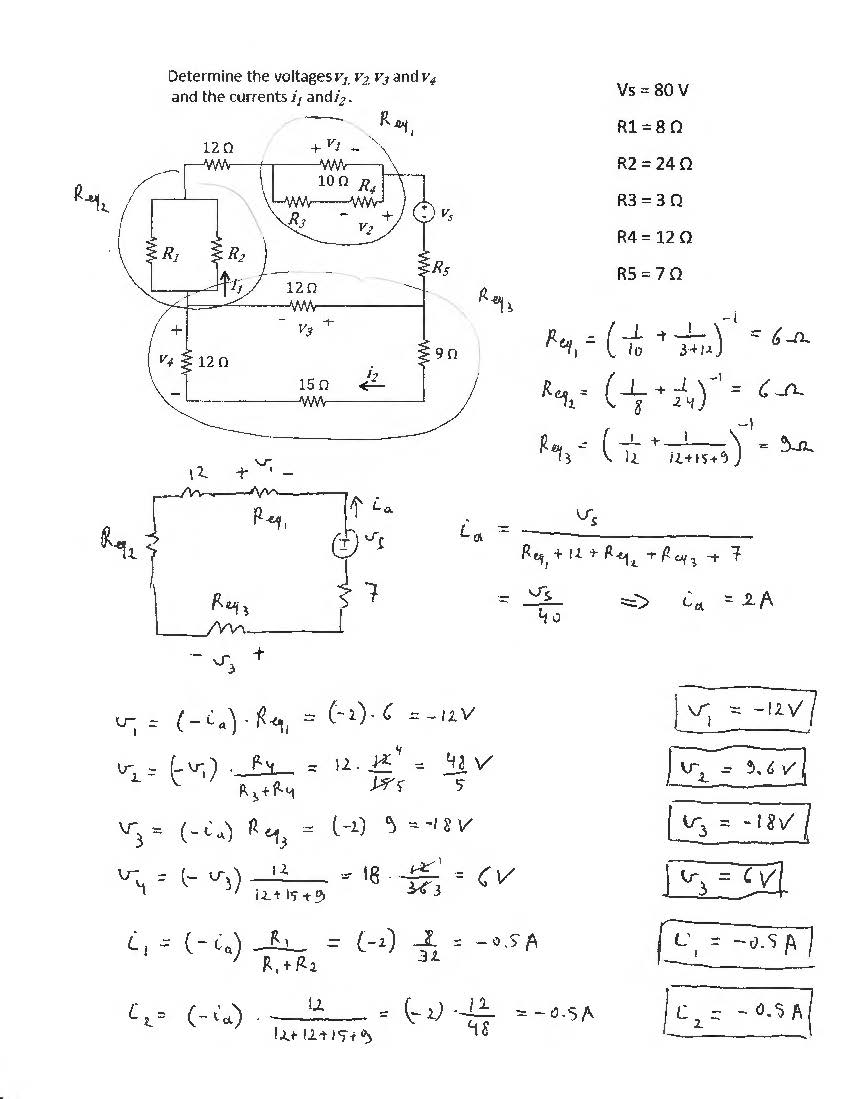 Determine the voltages v1, v2, v3 and v4
and the currents i1 and i2.
Vs = 80 V
R1 = 8 Ω
R2 = 24 Ω
R3 = 3 Ω
R4 = 12 Ω
R5 = 7 Ω
Req1
12 Ω
+ v1 -
10 Ω
R4
R3
- v2 +
vs
Req2
R1
R2
i1
R5
12 Ω
- v3 +
Req3
+
v4
-
12 Ω
9 Ω
15 Ω
i2
Req1 = (1/10 + 1/(3+12))^-1 = 6 Ω
Req2 = (1/8 + 1/24)^-1 = 6 Ω
Req3 = (1/12 + 1/(12+15+9))^-1 = 9 Ω
12 + v1 -
Req1
ia
Req2
vs
7
Req3
- v3 +
ia = vs/(Req1 + 12 + Req2 + Req3 + 7)
= vs/40 => ia = 2 A
v1 = (-ia) · Req1 = (-2) · 6 = -12 V
v1 = -12 V
v2 = (-v1) · R4/(R3+R4) = 12 · 12 4/15 5 = 48/5 V
v2 = 9.6 V
v3 = (-ia) Req3 = (-2) 9 = -18 V
v3 = -18 V
v4 = (-v3) 12/(12+15+9) = 18 · 12 1/36 3 = 6 V
v3 = 6 V
i1 = (-ia) R1/(R1+R2) = (-2) 8/32 = -0.5 A
i1 = -0.5 A
i2 = (-ia) · 12/(12+12+15+9) = (-2) · 12/48 = -0.5 A
i2 = -0.5 A